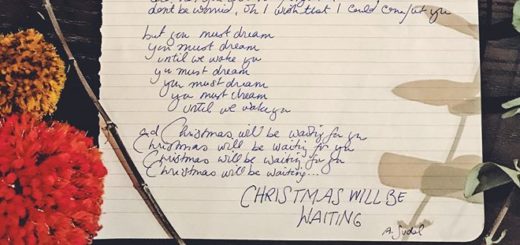 dont be worried, Oh I wish that I could comfort you
but you must dream
you must dream
until we wake you
you must dream
you must dream
you must dream
until we wake you
and Christmas will be waiting for you
Christmas will be waiting for you
Christmas will be waiting for you
Christmas will be waiting...
CHRISTMAS WILL BE
WAITING
A.